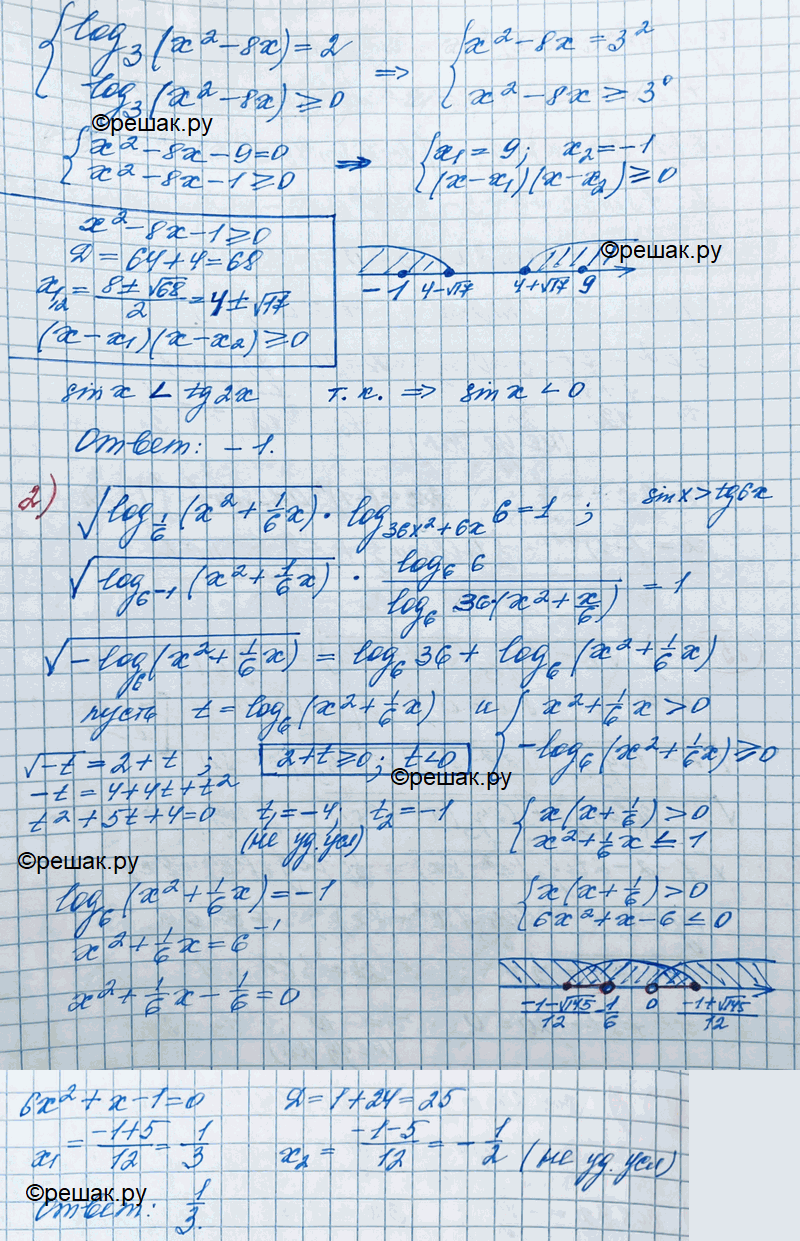 { log₃(x²-8x) = 2 => { x²-8x = 3²
{ log₃(x²-8x) ≥ 0 { x²-8x ≥ 3⁰
©решак.ру
{ x²-8x-9=0 => { x₁=9; x₂=-1
{ x²-8x-1≥0 { (x-x₁)(x-x₂) ≥ 0
x²-8x-1≥0
D=64+4=68
x₁,₂ = (8±√68)/2 = 4±√17
(x-x₁)(x-x₂)≥0
©решак.ру
-1 4-√17 4+√17 9
sin x < tg 2x т.к. => sin x < 0
Ответ: -1.
2) √(log_{1/6}(x²+1/6x)) · log_{36x²+6x} 6=1 ; sin x > tg 6x
√(log_{6⁻¹}(x²+1/6x)) · log₆ 6 / log₆ 36·(x²+x/6) = 1
√(-log₆(x²+1/6x)) = log₆ 36 + log₆(x²+1/6x)
пусть t = log₆(x²+1/6x) и { x²+1/6x > 0
{ -log₆(x²+1/6x) ≥ 0
√-t = 2+t ; 2+t≥0; t<0
©решак.ру
-t = 4+4t+t²
t²+5t+4=0 t₁=-4; t₂=-1
(не уд. усл)
{ x(x+1/6)>0
{ x²+1/6x ≤ 1
©решак.ру
log₆(x²+1/6x)=-1
{ x(x+1/6)>0
{ 6x²+x-6 ≤ 0
x²+1/6x = 6⁻¹
x²+1/6x-1/6=0
(-1-√145)/12 -1/6 0 (-1+√145)/12
©решак.ру
6x²+x-1=0 D=1+24=25
x₁ = (-1+5)/12 = 1/3 x₂ = (-1-5)/12 = -1/2 (не уд. усл)
©решак.ру
Ответ: 1/3.